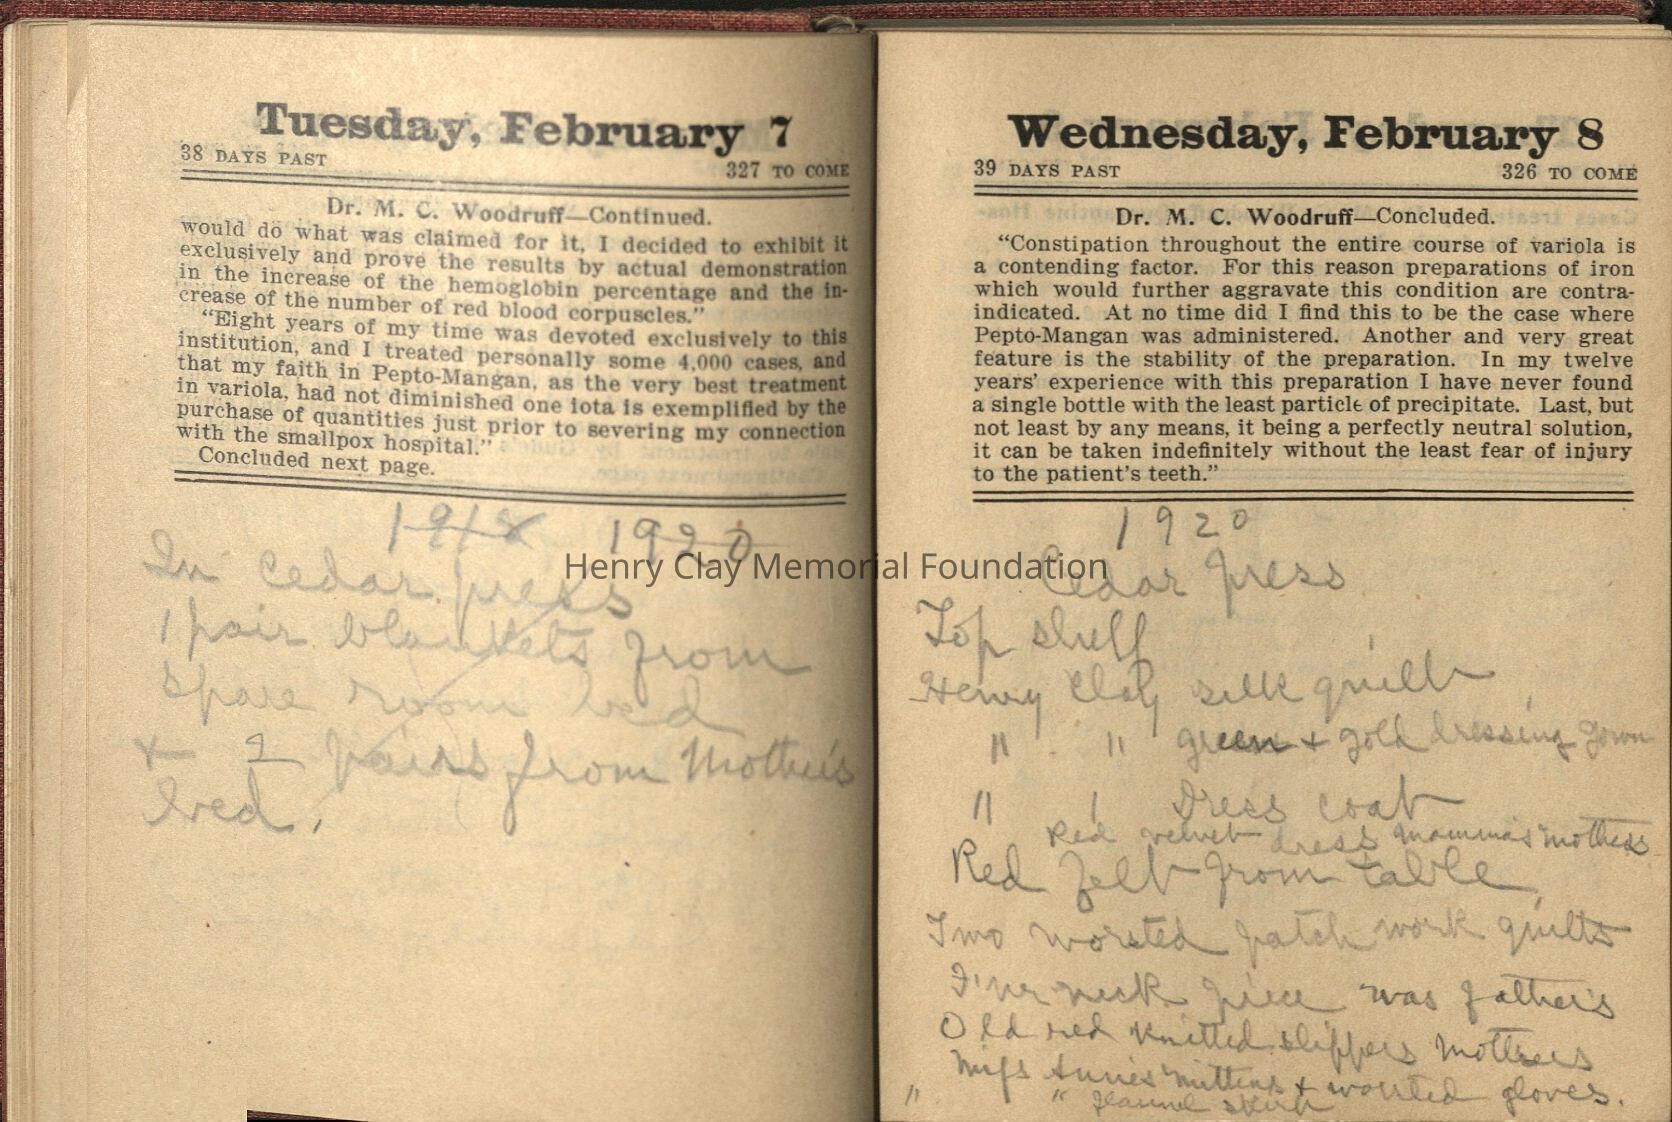 Tuesday, February 7
38 DAYS PAST 327 TO COME
Dr. M. C. Woodruff—Continued.
would do what was claimed for it, I decided to exhibit it
exclusively and prove the results by actual demonstration
in the increase of the hemoglobin percentage and the in-
crease of the number of red blood corpuscles."
"Eight years of my time was devoted exclusively to this
institution, and I treated personally some 4,000 cases, and
that my faith in Pepto-Mangan, as the very best treatment
in variola, had not diminished one iota is exemplified by the
purchase of quantities just prior to severing my connection
with the smallpox hospital."
Concluded next page.
1918 1920
In cedar press
1 pair blankets from
spare room bed
+ 2 pairs from Mother's
bed.
Wednesday, February 8
39 DAYS PAST 326 TO COME
Dr. M. C. Woodruff—Concluded.
"Constipation throughout the entire course of variola is
a contending factor. For this reason preparations of iron
which would further aggravate this condition are contra-
indicated. At no time did I find this to be the case where
Pepto-Mangan was administered. Another and very great
feature is the stability of the preparation. In my twelve
years' experience with this preparation I have never found
a single bottle with the least particle of precipitate. Last, but
not least by any means, it being a perfectly neutral solution,
it can be taken indefinitely without the least fear of injury
to the patient's teeth."
1920
Cedar press
Top shelf
Henry Clay silk quilt
" " green + gold dressing gown
" " Dress coat
Red velvet dress Mamma's mothers
Red felt from table
Two worsted patch work quilts
Fur neck piece was father's
Old red knitted slippers Mothers
Miss Annies mittens + worsted gloves.
" " flannel skirt
Henry Clay Memorial Foundation